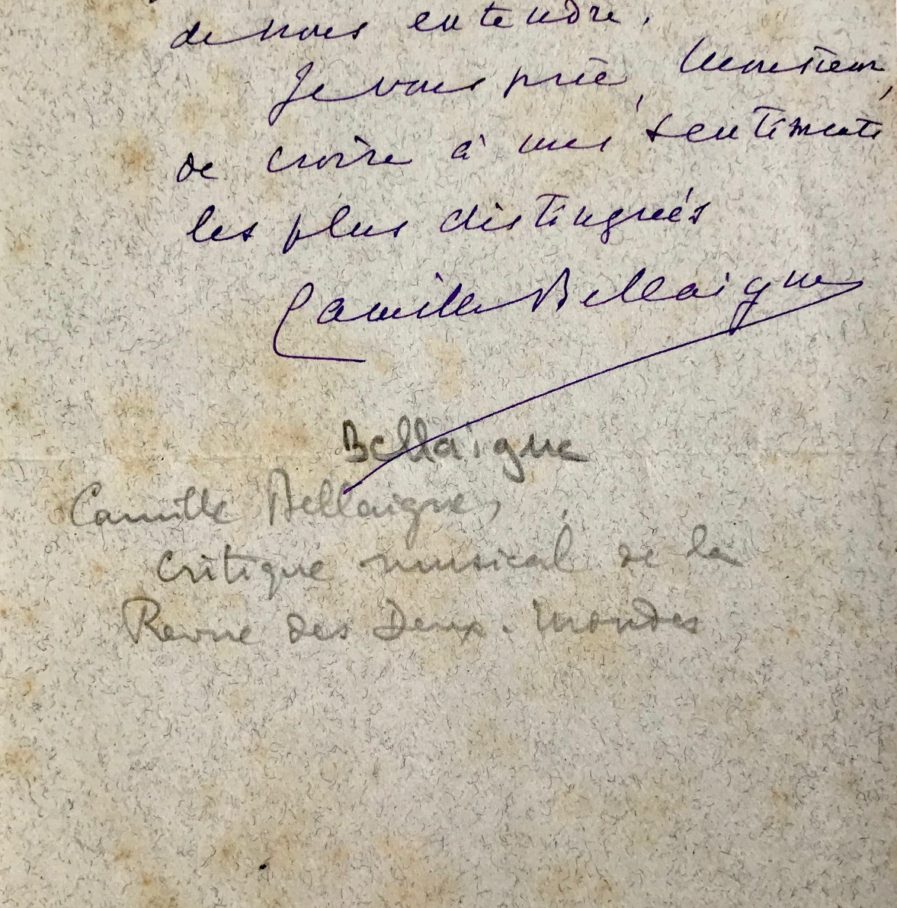 de nous entendre.
Je vous prie, Monsieur,
de croire à mes sentiments
les plus distingués
Camille Bellaigue
Bellaigue
Camille Bellaigue,
critique musical de la
Revue des Deux-Mondes